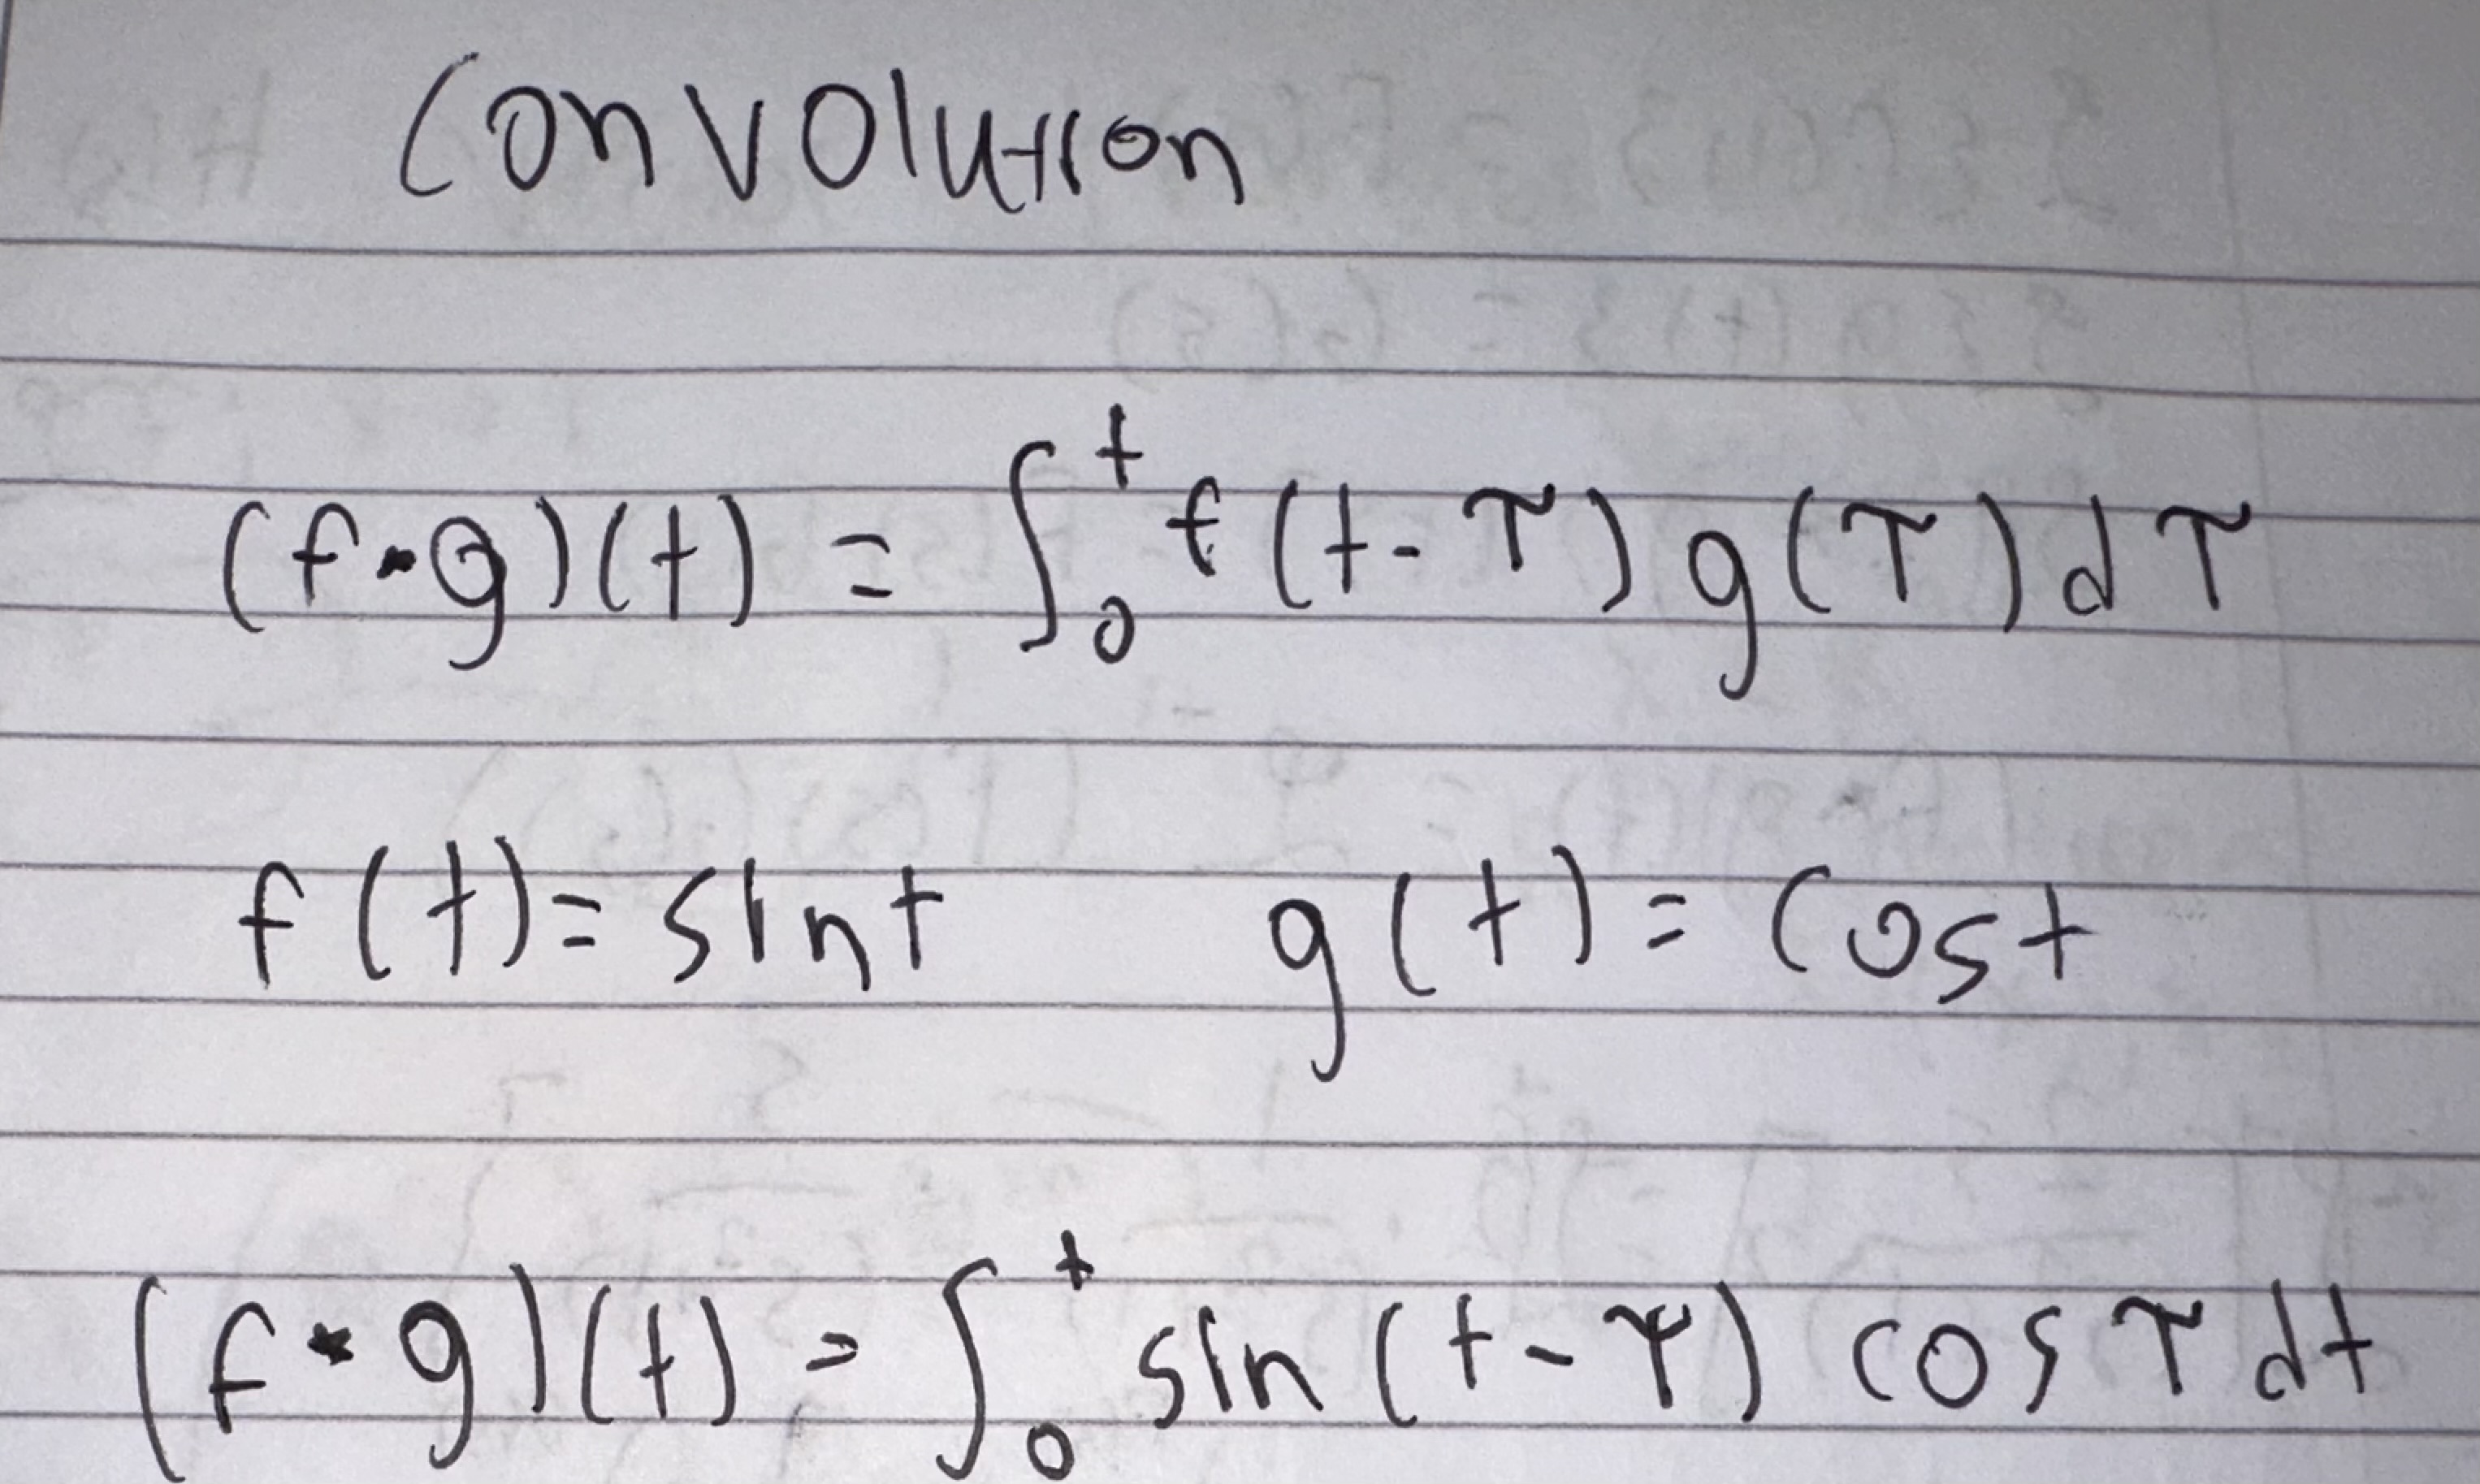 Convolution
(f*g)(t) = ∫₀ᵗ f(t-τ)g(τ)dτ
f(t)= sint g(t)= cost
(f*g)(t) = ∫₀ᵗ sin(t-τ) cosτ dt